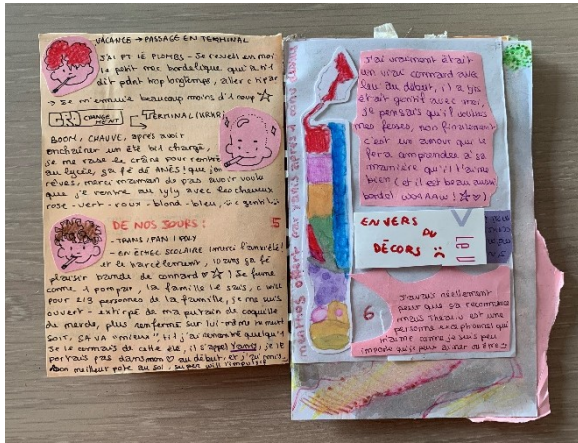 VACANCE → PASSAGE EN TERMINAL
J'AI PT LÉ PLOMBS - Je reveil en moi
le petit mec bordelique qui a n'é
dit point trop longtemps, aller c tipar
→ Je m'ennuie beaucoup moins d'1 coup ☆
CHANGEMENT TERMINAL
BOOM, CHAUVE, après avoir
enchaîner un été bit changé,
je me rase le crâne pour rentré
au lycée, sa fé dé ANÉS! que jen
rêves, merci maman de pas avoir voulu
que je rentre au lyly avec les cheveux
rose - vert - roux - blond - bleu, gentil
DE NOS JOURS :
5
- TRANS / PAN / POLY
- EN ÉCHEC SCOLAIRE (merci l'anxiété!
et le harcèlement, 10 ans ça fé
plaisir bande de connard ☆) Je fume
comme 1 pompier, la famille le sais, c
pour 2/3 personnes de la famille, je me suis
ouvert - extirpé de ma putain de coquille
de merde, plus renfermé sur lui
soit, sa va "mieux", j'ai rencontré quelqu'1
Je le connais de cette été, il s'appel Yanis, je le
portais pas dans mon ♡ au début, et j'ai
bon meilleur pote au sol, super
offert par Yanis
J'ai vraiment était
un vrai connard avec
lui au début, il a tjs
était gentil avec moi,
je pensais qu'il voulais
mes fesses, non finalement
c'est un amour qui le
fera comprendre à sa
manière qu'il t'aime
bien (et il est beau aussi
bordel
ENVERS
DU
DÉCORS
6
J'avais réellement
peur que sa recommence
mais
personne exceptionnel qui
m'aime comme je suis peu
importe